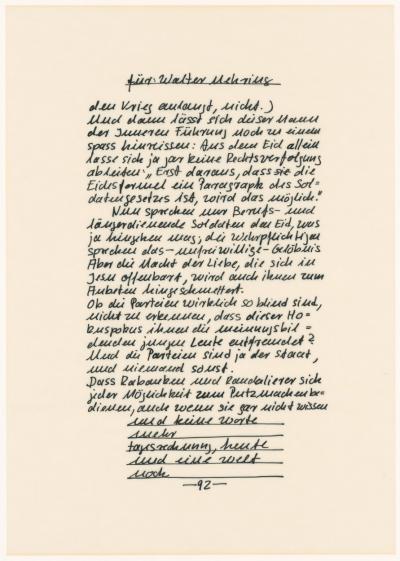 für: Walter Mehring
den Krieg anlangt, nicht.)
Und dann lässt sich dieser Mann
der Inneren Führung noch zu einem
spass hinreissen: Aus dem Eid allein
lasse sich ja gar keine Rechtsverfolgung
ableiten: „Erst daraus, dass sie die
Eidesformel ein Paragraph des Sol=
datengesetzes ist, wird das möglich."
Nun sprechen nur Berufs- und
längerdienende Soldaten den Eid, was
ja hingehen mag; die Wehrpflichtigen
sprechen das - unfreiwillige - Gelöbnis
Aber die Macht der Liebe, die sich in
Jesu offenbart, wird auch ihnen zum
Anbeten hingeschmettert.
Ob die Parteien wirklich so blind sind,
nicht zu erkennen, dass dieser Ho=
kuspokus ihnen die meinungsbil=
denden jungen Leute entfremdet?
Und die Parteien sind ja der Staat,
und niemand sonst.
Dass Rabauken und Randalierer sich
jeder Möglichkeit zum Putzmachen be=
dienen, auch wenn sie gar nicht wissen
und keine worte
mehr
tagesrechnung, heute
und eine welt
noch
—92—